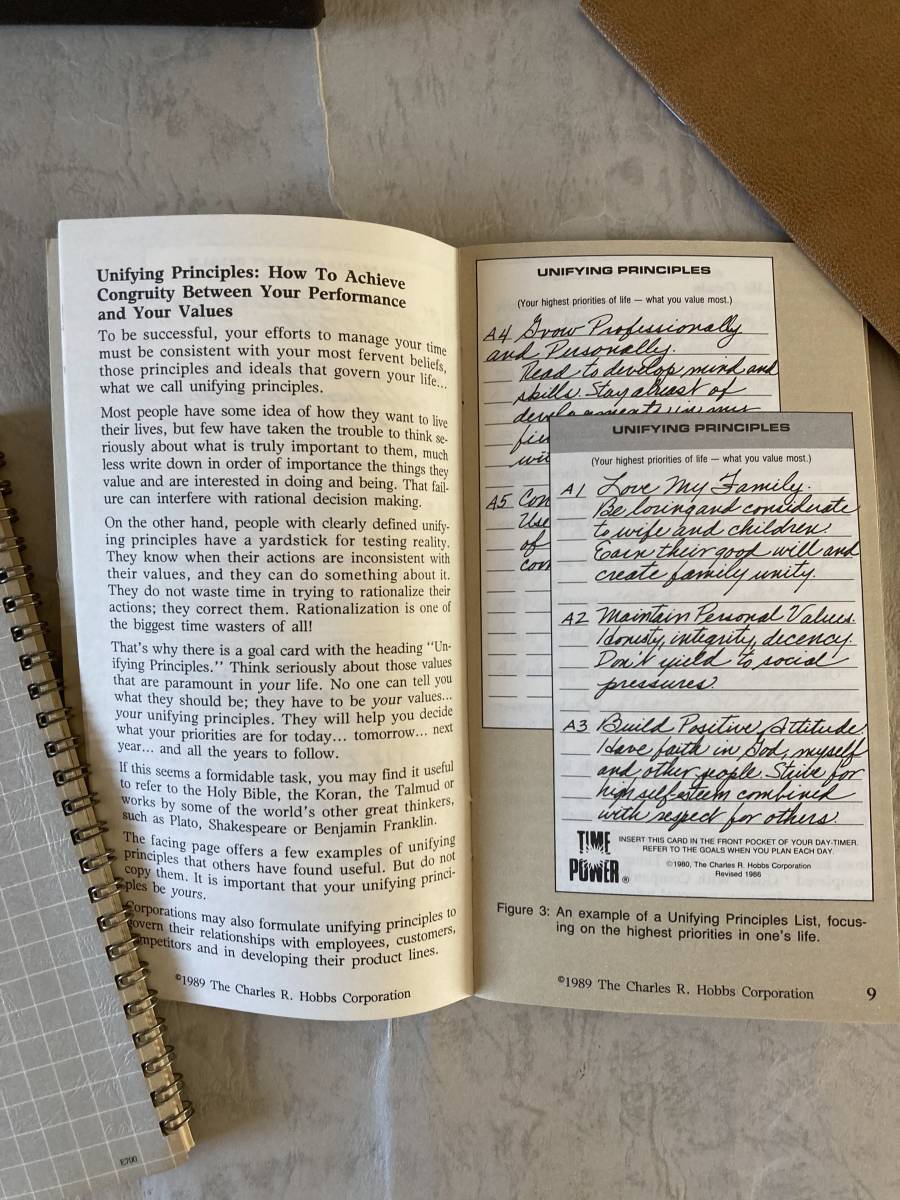 Unifying Principles: How To Achieve
Congruity Between Your Performance
and Your Values
To be successful, your efforts to manage your time
must be consistent with your most fervent beliefs,
those principles and ideals that govern your life...
what we call unifying principles.
Most people have some idea of how they want to live
their lives, but few have taken the trouble to think se-
riously about what is truly important to them, much
less write down in order of importance the things they
value and are interested in doing and being. That fail-
ure can interfere with rational decision making.
On the other hand, people with clearly defined unify-
ing principles have a yardstick for testing reality.
They know when their actions are inconsistent with
their values, and they can do something about it.
They do not waste time in trying to rationalize their
actions; they correct them. Rationalization is one of
the biggest time wasters of all!
That's why there is a goal card with the heading "Un-
ifying Principles." Think seriously about those values
that are paramount in your life. No one can tell you
what they should be; they have to be your values...
your unifying principles. They will help you decide
what your priorities are for today... tomorrow... next
year... and all the years to follow.
If this seems a formidable task, you may find it useful
to refer to the Holy Bible, the Koran, the Talmud or
works by some of the world's other great thinkers,
such as Plato, Shakespeare or Benjamin Franklin.
The facing page offers a few examples of unifying
principles that others have found useful. But do not
copy them. It is important that your unifying princi-
ples be yours.
Corporations may also formulate unifying principles to
govern their relationships with employees, customers,
competitors and in developing their product lines.
©1989 The Charles R. Hobbs Corporation
UNIFYING PRINCIPLES
(Your highest priorities of life — what you value most.)
A4 Grow Professionally
and Personally.
Read to develop mind and
skills. Stay abreast of
developments in my
A5 Con
Use
of
UNIFYING PRINCIPLES
(Your highest priorities of life — what you value most.)
A1 Love My Family.
Be loving and considerate
to wife and children
Earn their good will and
create family unity.
A2 Maintain Personal Values.
Honesty, integrity, decency.
Don't yield to social
pressures.
A3 Build Positive Attitude.
Have faith in God, myself
and other people. Strive for
high self-esteem combined
with respect for others.
TIME
POWER®
INSERT THIS CARD IN THE FRONT POCKET OF YOUR DAY-TIMER.
REFER TO THE GOALS WHEN YOU PLAN EACH DAY
©1980, The Charles R. Hobbs Corporation
Revised 1986
Figure 3: An example of a Unifying Principles List, focus-
ing on the highest priorities in one's life.
©1989 The Charles R. Hobbs Corporation
9
E700